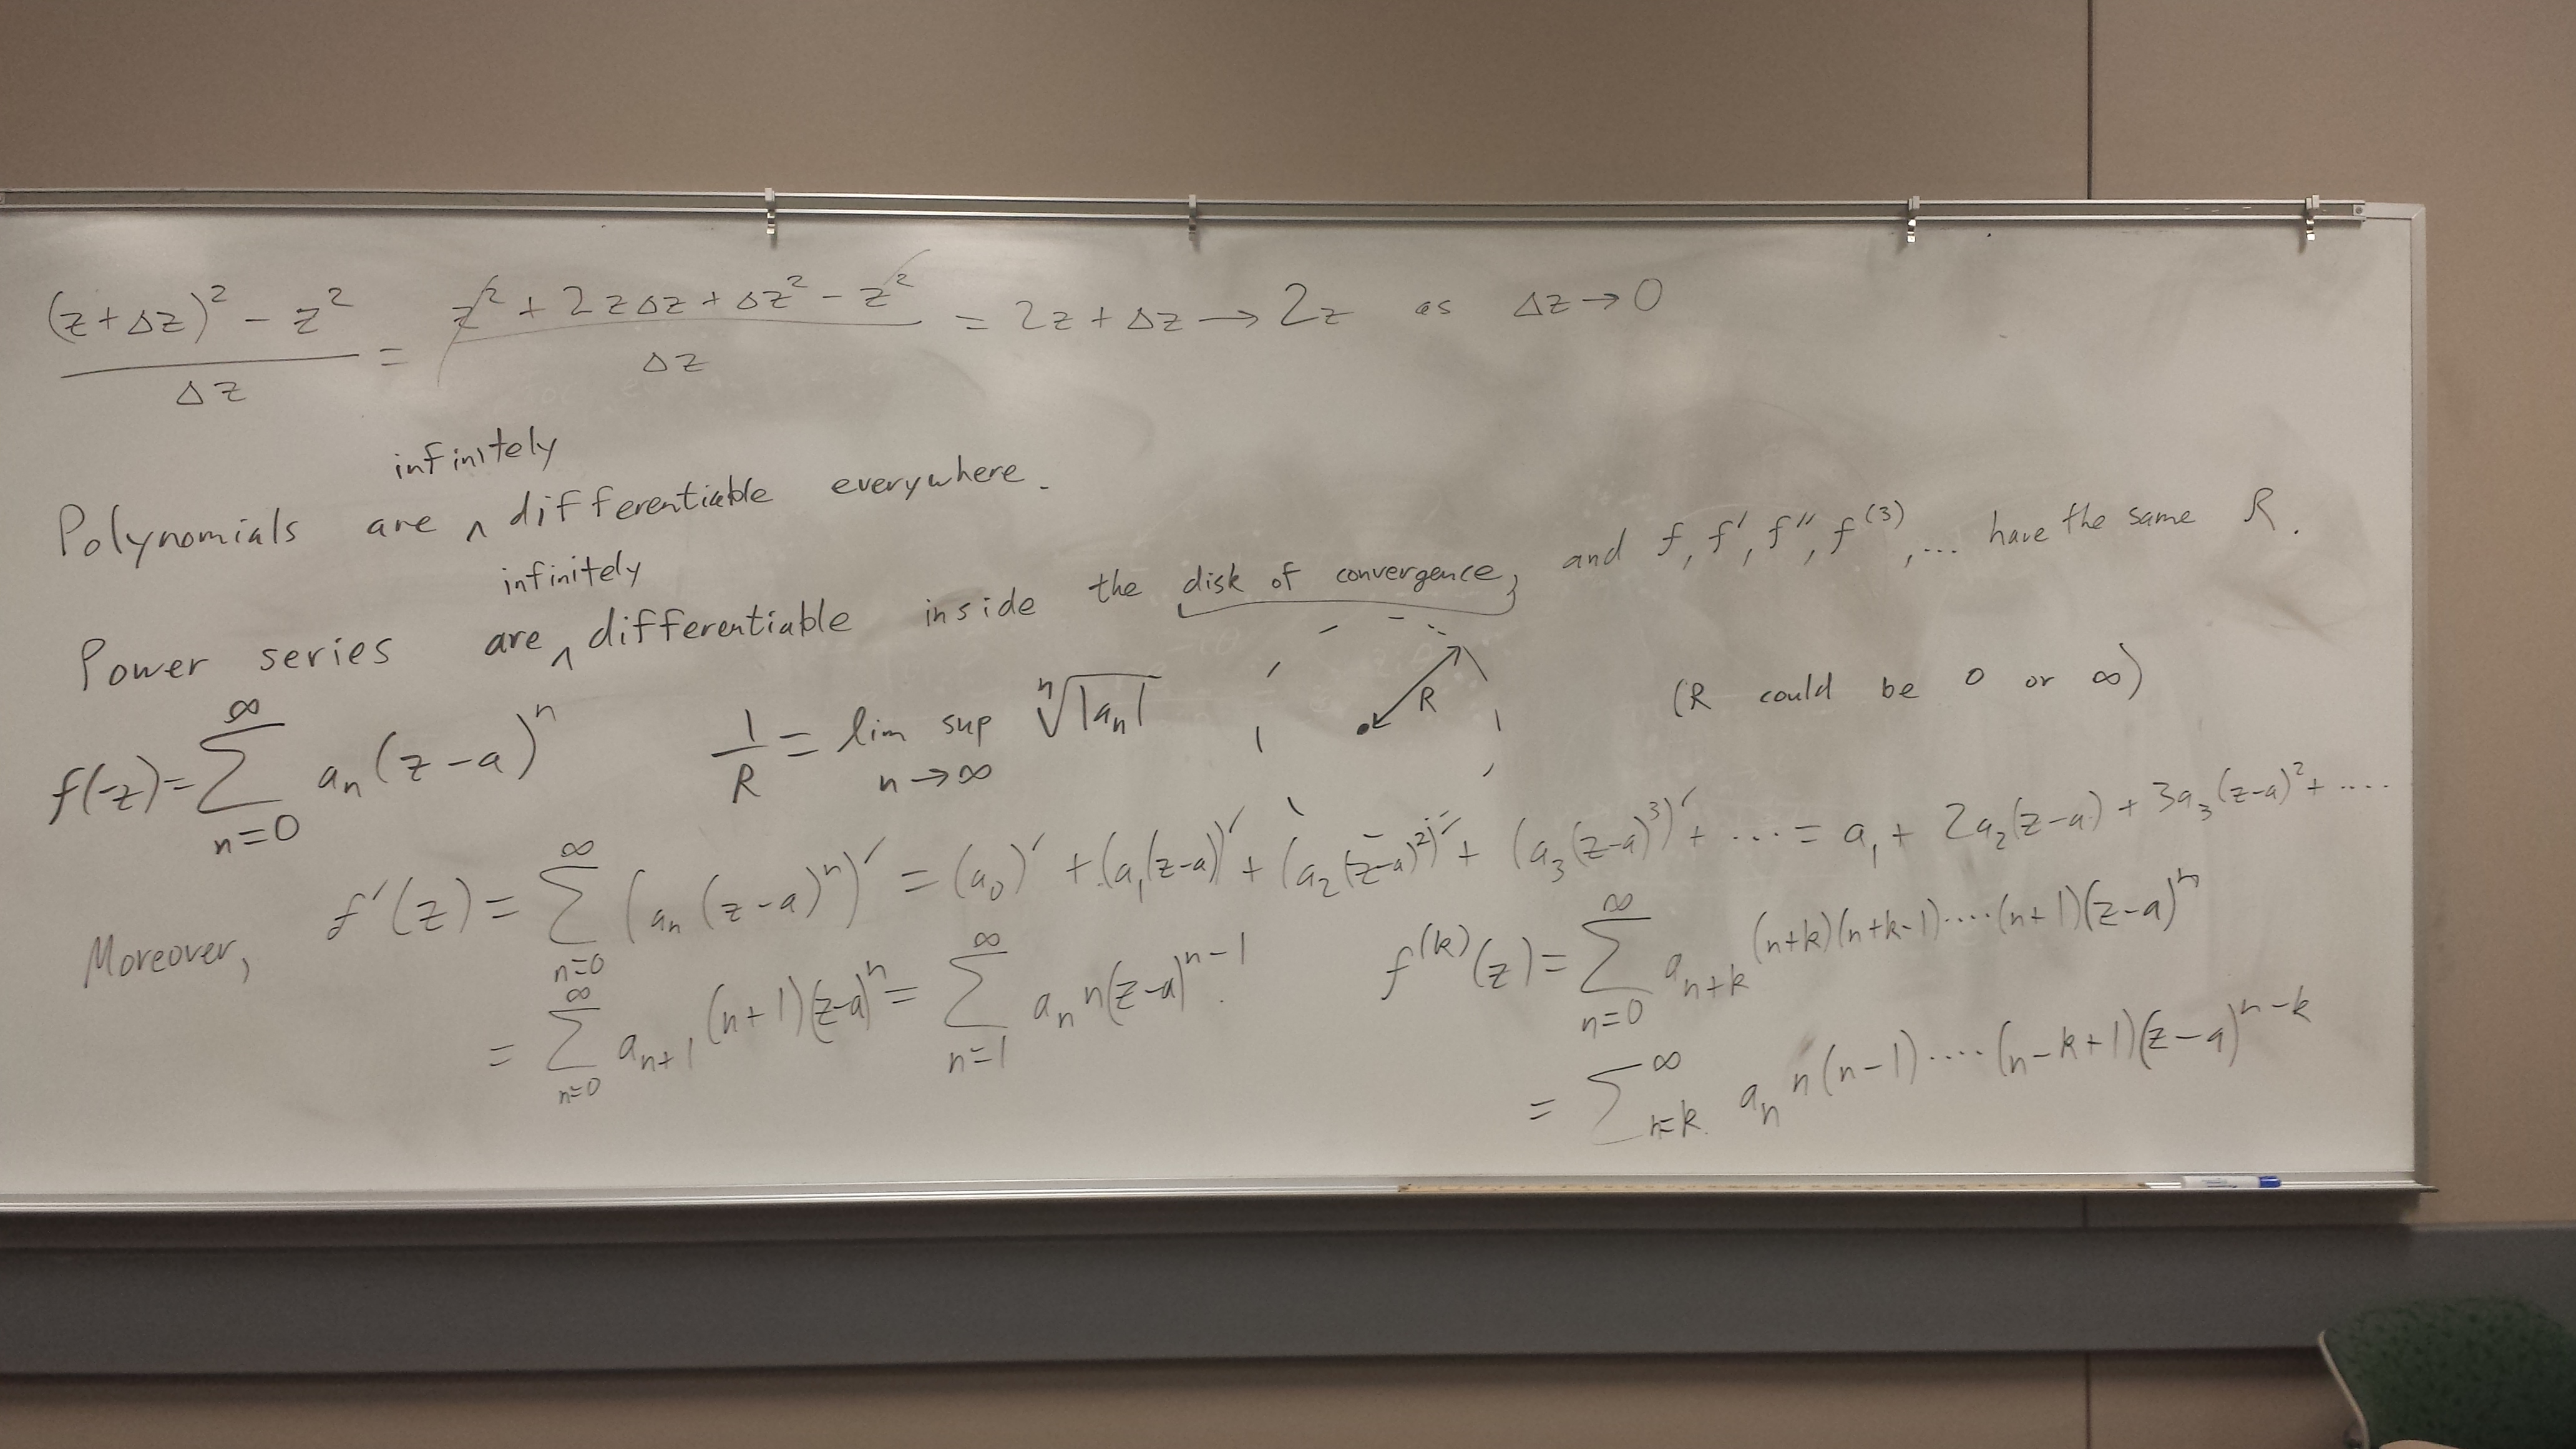 ((z+Δz)² - z²)/Δz = (z² + 2zΔz + Δz² - z²)/Δz = 2z + Δz → 2z as Δz → 0
infinitely
Polynomials are ^ differentiable everywhere.
infinitely
Power series are ^ differentiable inside the disk of convergence, and f, f′, f″, f⁽³⁾, ... have the same R.
f(z) = ∑_{n=0}^{∞} a_n (z-a)^n    1/R = lim sup_{n→∞} ⁿ√|a_n|    R    (R could be 0 or ∞)
Moreover, f′(z) = ∑_{n=0}^{∞} (a_n (z-a)^n)′ = (a_0)′ + (a_1(z-a))′ + (a_2(z-a)²)′ + (a_3(z-a)³)′ + ... = a_1 + 2a_2(z-a) + 3a_3(z-a)² + ....
= ∑_{n=0}^{∞} a_{n+1} (n+1)(z-a)^n = ∑_{n=1}^{∞} a_n n(z-a)^{n-1}.
f^{(k)}(z) = ∑_{n=0}^{∞} a_{n+k} (n+k)(n+k-1)....(n+1)(z-a)^n
= ∑_{n=k}^{∞} a_n n(n-1)....(n-k+1)(z-a)^{n-k}